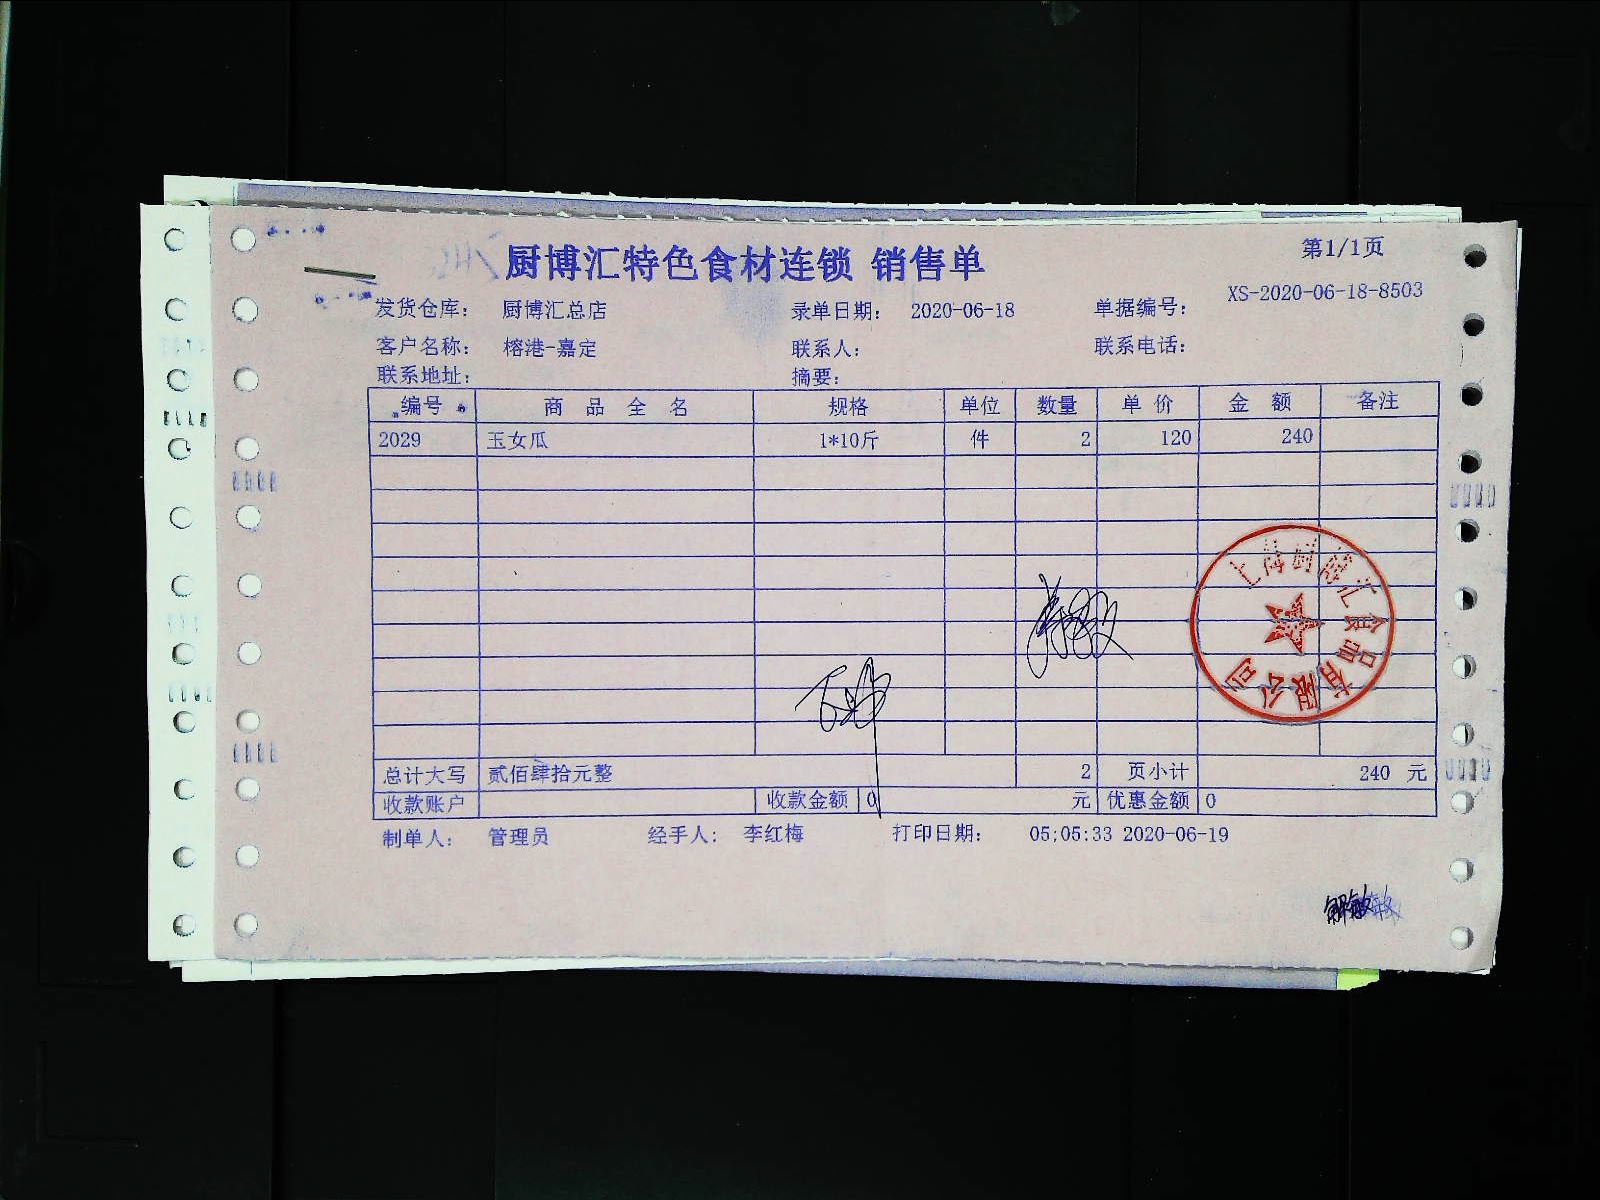 厨博汇特色食材连锁 销售单
第1/1页
发货仓库： 厨博汇总店 录单日期： 2020-06-18 单据编号： XS-2020-06-18-8503
客户名称： 榕港-嘉定 联系人： 联系电话：
联系地址： 摘要：
编号 商品全名 规格 单位 数量 单价 金额 备注
2029 玉女瓜 1*10斤 件 2 120 240
上海厨博汇食品有限公司
总计大写 贰佰肆拾元整 2 页小计 240 元
收款账户 收款金额 0 元 优惠金额 0
制单人： 管理员 经手人： 李红梅 打印日期： 05:05:33 2020-06-19